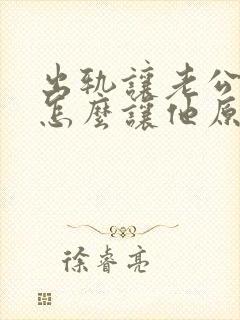 出轨讓老公
怎麼讓他原
徐睿亮